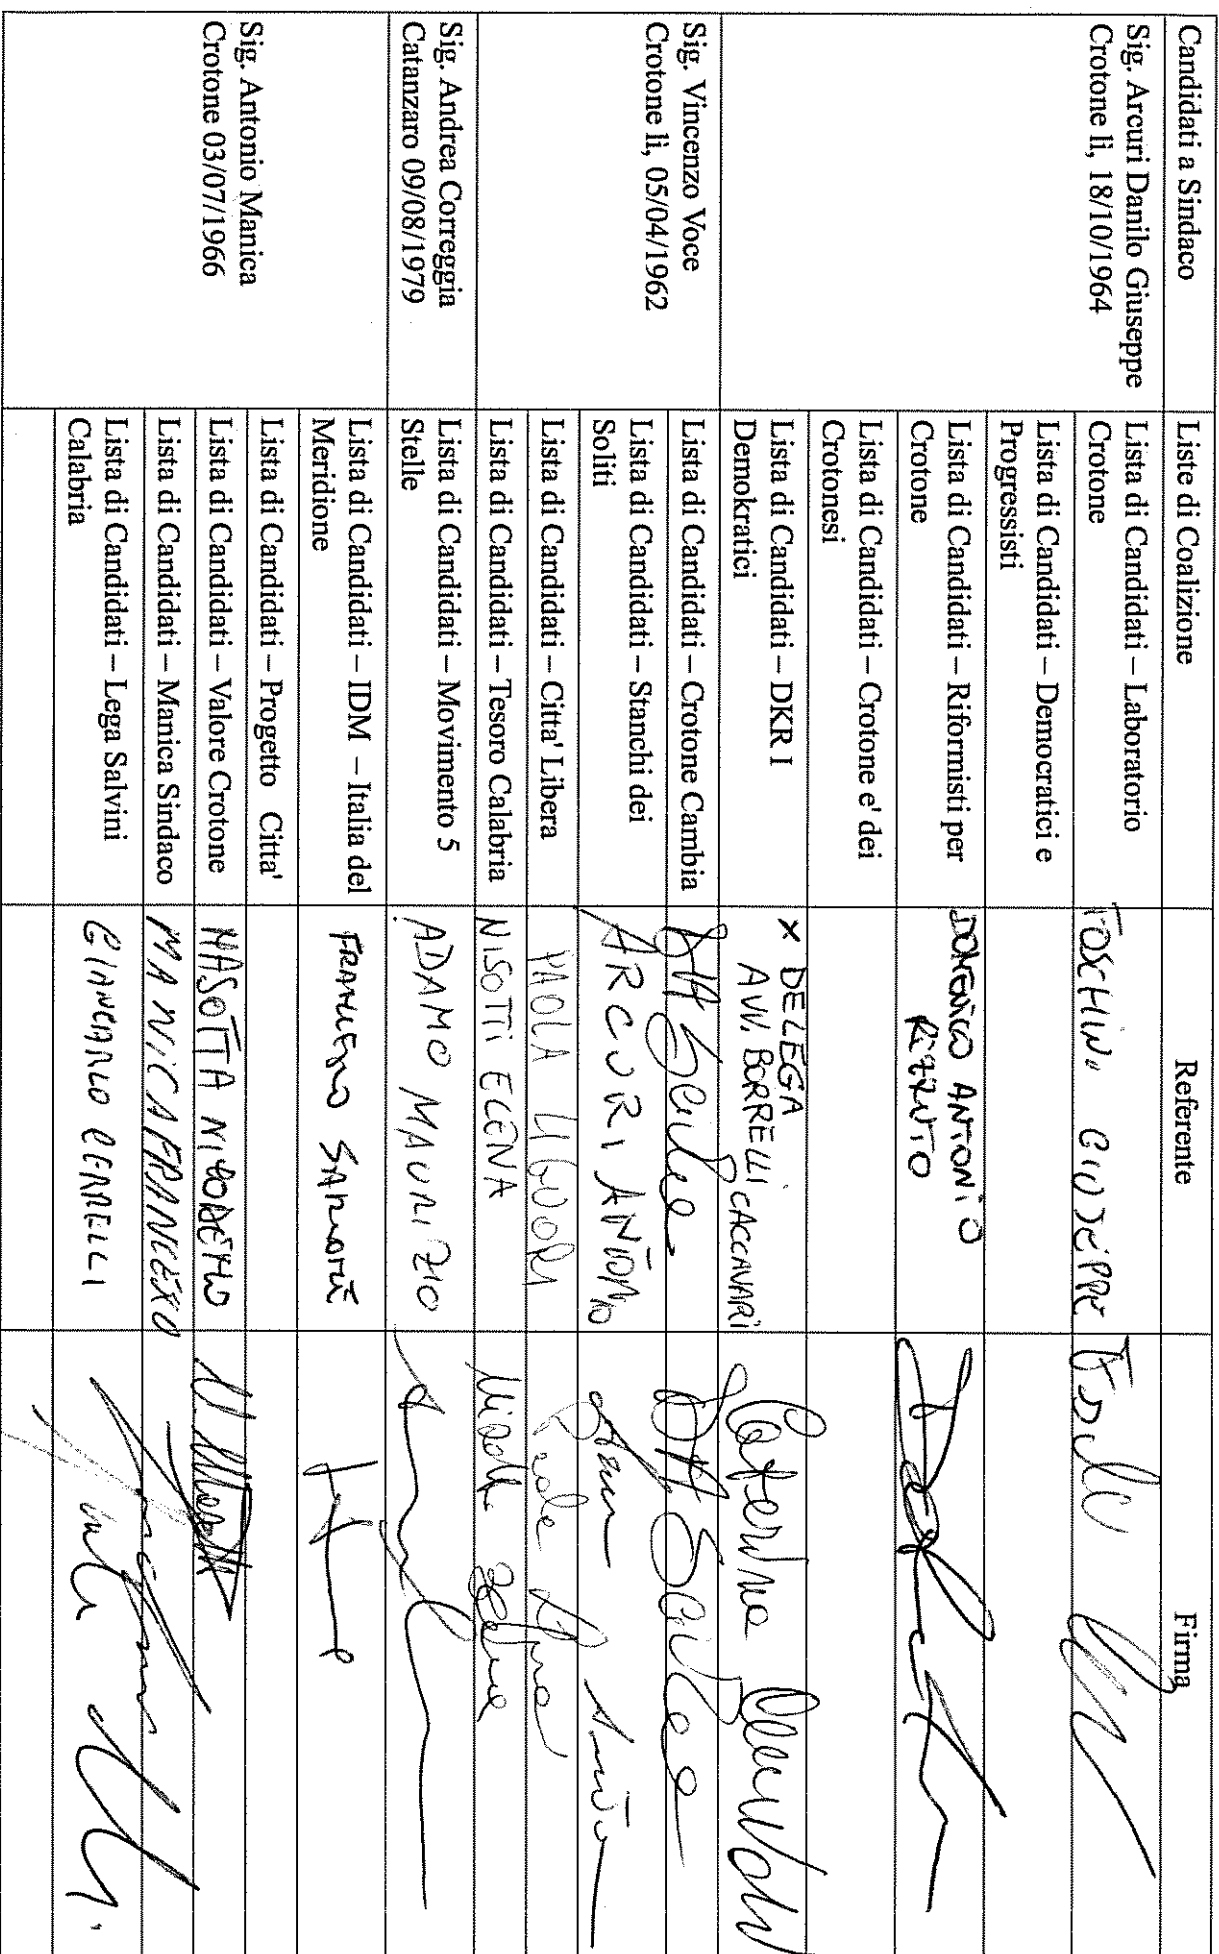 Candidati a Sindaco
Liste di Coalizione
Referente
Firma
Sig. Arcuri Danilo Giuseppe
Crotone li, 18/10/1964
Lista di Candidati – Laboratorio
Crotone
Lista di Candidati – Democratici e
Progressisti
Lista di Candidati – Riformisti per
Crotone
DOMENICO ANTONIO
RIZZUTO
Lista di Candidati – Crotone e' dei
Crotonesi
Lista di Candidati – DKR I
Demokratici
x DELEGA
AVV. BORRELLI CACCAVARI
Caterina
Sig. Vincenzo Voce
Crotone li, 05/04/1962
Lista di Candidati – Crotone Cambia
Lista di Candidati – Stanchi dei
Soliti
ARCURI ANTONIO
Lista di Candidati – Citta' Libera
PAOLA LIGUORI
Lista di Candidati – Tesoro Calabria
ELENA
Sig. Andrea Correggia
Catanzaro 09/08/1979
Lista di Candidati – Movimento 5
Stelle
ADAMO MAURIZIO
Sig. Antonio Manica
Crotone 03/07/1966
Lista di Candidati – IDM – Italia del
Meridione
FRANCESCO
Lista di Candidati – Progetto Citta'
Lista di Candidati – Valore Crotone
MASOTTA NICODEMO
Lista di Candidati – Manica Sindaco
MANICA FRANCESCO
Lista di Candidati – Lega Salvini
Calabria
GIANCARLO CERRELLI